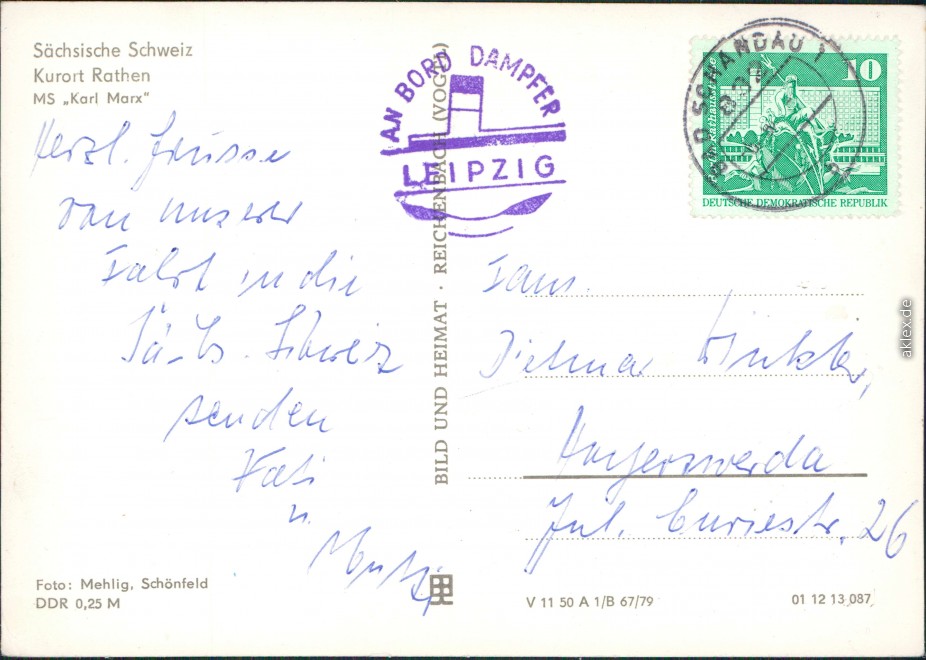 Sächsische Schweiz
Kurort Rathen
MS „Karl Marx"
Herzl. Grüsse
von unserer
Fahrt in die
Sächs. Schweiz
senden
Vati
u.
Mutti
Foto: Mehlig, Schönfeld
DDR 0,25 M
BILD UND HEIMAT · REICHENBACH (VOGTL)
AN BORD DAMPFER
LEIPZIG
SCHANDAU 1
10
DEUTSCHE DEMOKRATISCHE REPUBLIK
Fam.
Dietmar Winkler,
Hoyerswerda
Jul. Curiestr. 26
V 11 50 A 1/B 67/79
01 12 13 087
aklex.de